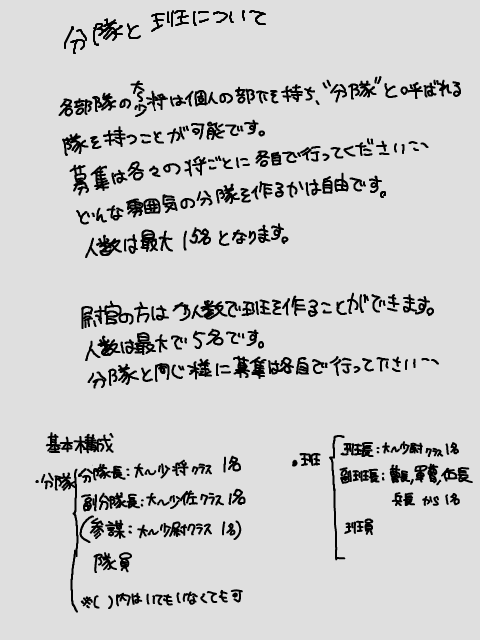 分隊と班について
各部隊の大〜少将は個人の部下を持ち、"分隊"と呼ばれる
隊を持つことが可能です。
募集は各々の将ごとに各自で行ってください〜
どんな雰囲気の分隊を作るかは自由です。
人数は最大15名となります。
尉官の方は少人数で班を作ることができます。
人数は最大で5名です。
分隊と同じ様に募集は各自で行って下さい〜
基本構成
・分隊
分隊長：大〜少将クラス 1名
副分隊長：大〜少佐クラス 1名
(参謀：大〜少尉クラス 1名)
隊員
※( )内はいてもいなくても可
・班
班長：大〜少尉クラス 1名
副班長：曹長,軍曹,伍長
兵員 から 1名
班員